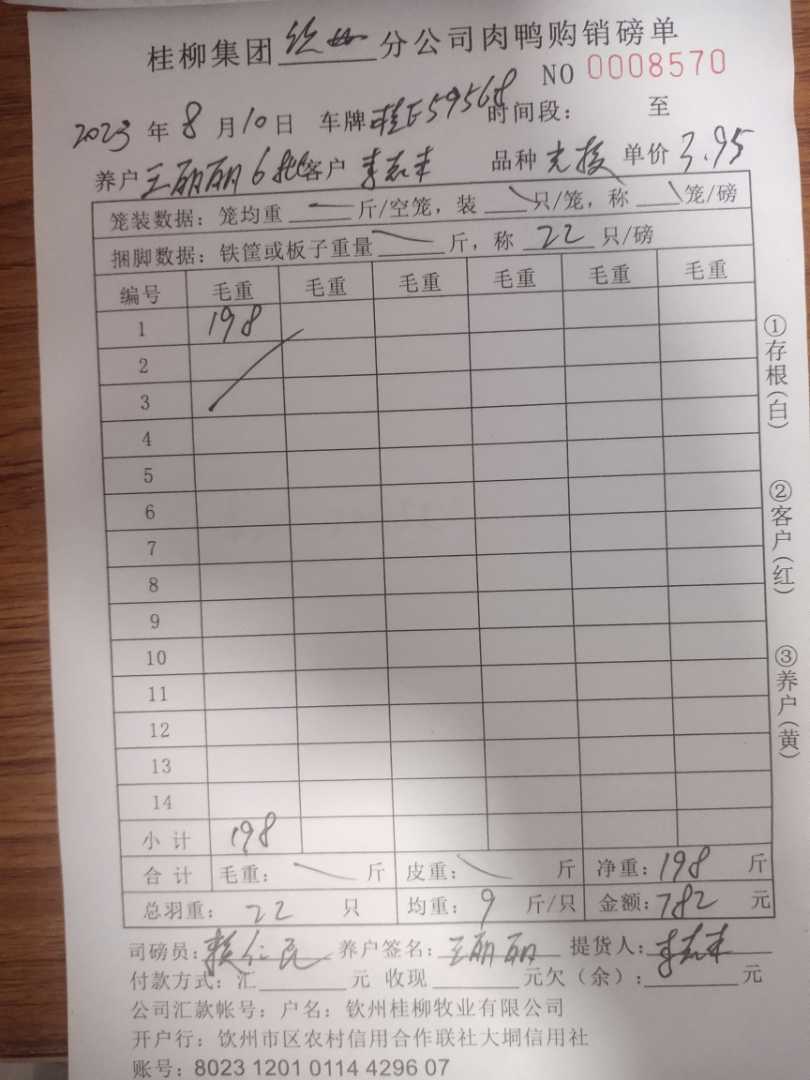 桂柳集团 钦州 分公司肉鸭购销磅单
NO 0008570
2023 年 8 月 10 日 车牌 桂E59568 时间段: 至
养户 王丽丽6批 客户 品种 单价 3.95
笼装数据: 笼均重 斤/空笼, 装 只/笼, 称 笼/磅
捆脚数据: 铁筐或板子重量 斤, 称 22 只/磅
编号 毛重 毛重 毛重 毛重 毛重 毛重
1 198
2
3
4
5
6
7
8
9
10
11
12
13
14
小计 198
合计 毛重: 斤 皮重: 斤 净重: 198 斤
总羽重: 22 只 均重: 9 斤/只 金额: 782 元
司磅员: 赖仁民 养户签名: 王丽丽 提货人:
付款方式: 汇 元 收现 元欠(余): 元
公司汇款帐号: 户名: 钦州桂柳牧业有限公司
开户行: 饮州市区农村信用合作联社大垌信用社
账号: 8023 1201 0114 4296 07
①存根(白)
②客户(红)
③养户(黄)